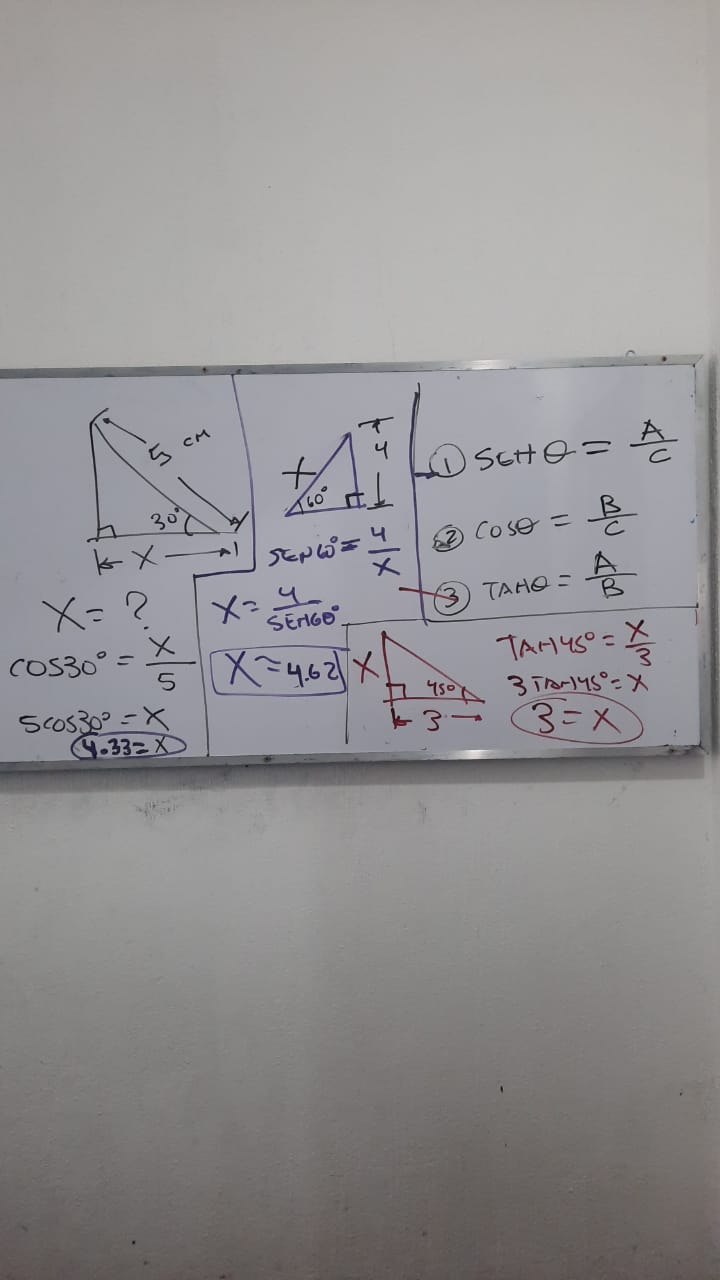 5 cm
30°
X
X = ?
COS30° = X/5
5COS30° = X
4.33 = X
X
4
60°
SEN60° = 4/X
X = 4/SEN60°
X = 4.62
① SENθ = A/C
② COSθ = B/C
③ TANθ = A/B
X
45°
3
TAN45° = X/3
3TAN45° = X
3 = X